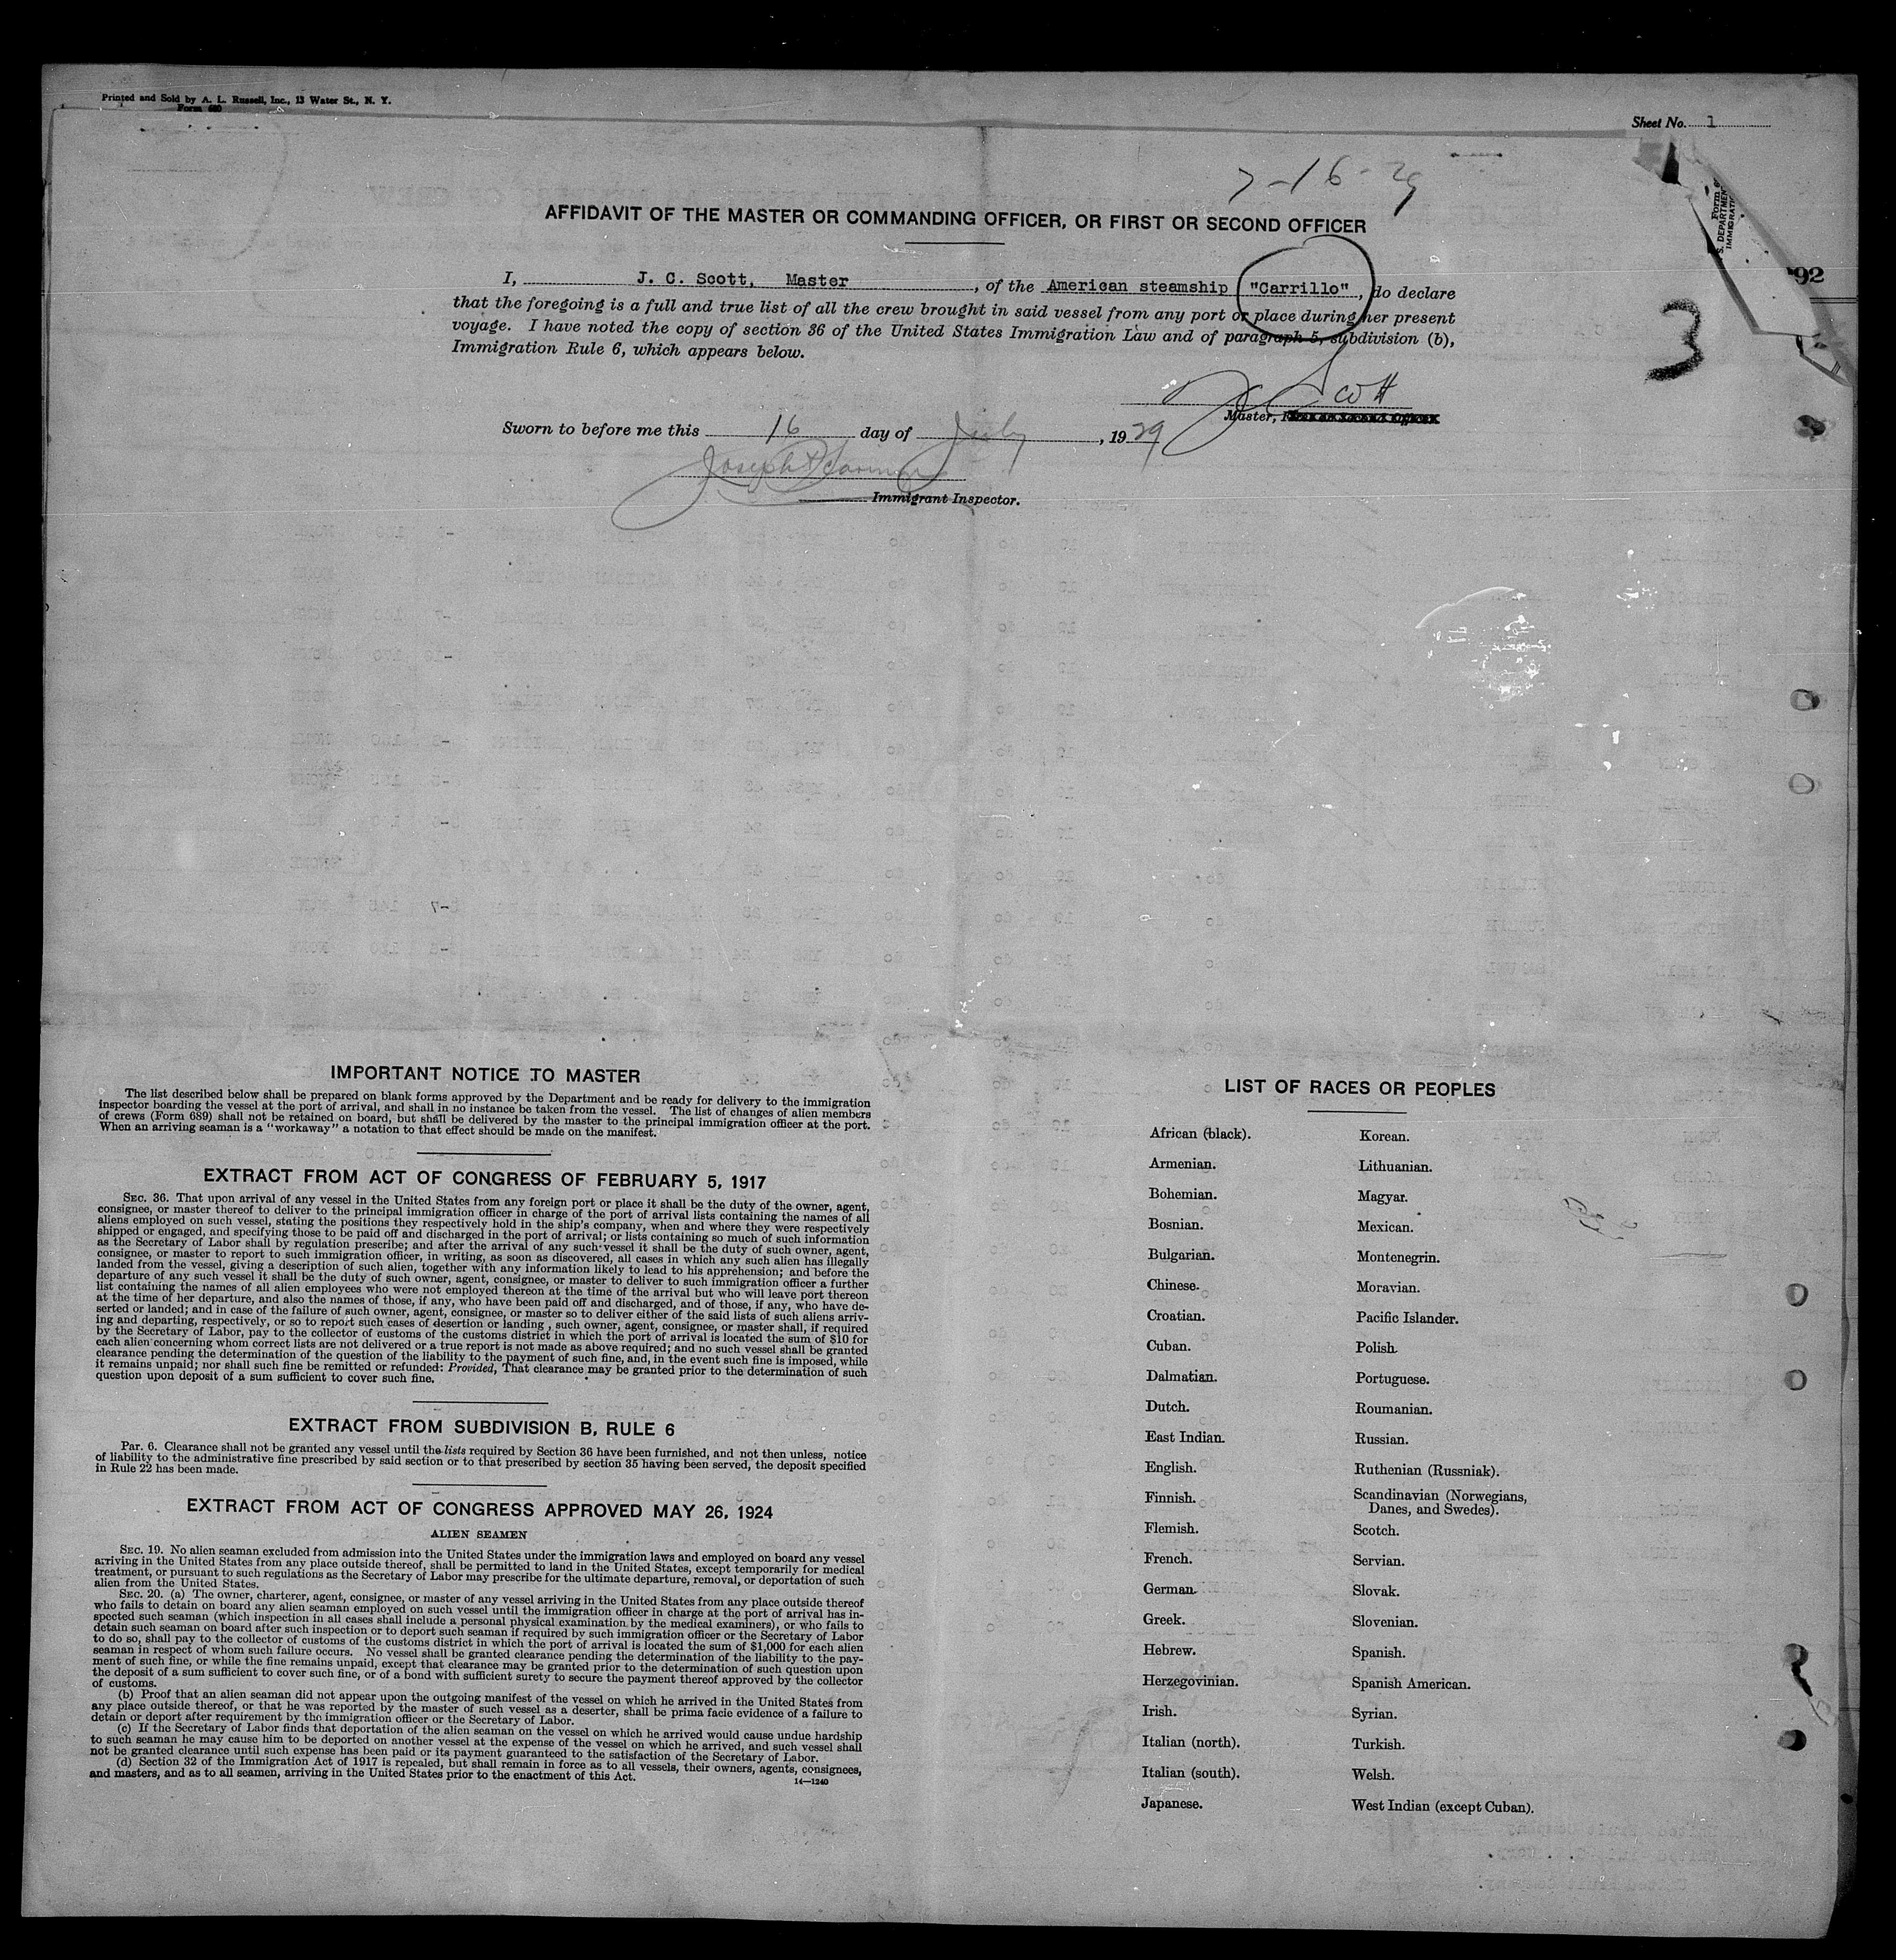 Printed and Sold by A. L. Russell, Inc., 13 Water St., N. Y.
Form 680
Sheet No. 1
7-16-29
AFFIDAVIT OF THE MASTER OR COMMANDING OFFICER, OR FIRST OR SECOND OFFICER
I, J. C. Scott, Master, of the American steamship "Carrillo", do declare
that the foregoing is a full and true list of all the crew brought in said vessel from any port or place during her present
voyage. I have noted the copy of section 36 of the United States Immigration Law and of paragraph 5, subdivision (b),
Immigration Rule 6, which appears below.
92
3
J C Scott
Master,
Sworn to before me this 16 day of July, 1929
Joseph
Immigrant Inspector.
IMPORTANT NOTICE TO MASTER
The list described below shall be prepared on blank forms approved by the Department and be ready for delivery to the immigration
inspector boarding the vessel at the port of arrival, and shall in no instance be taken from the vessel. The list of changes of alien members
of crews (Form 689) shall not be retained on board, but shall be delivered by the master to the principal immigration officer at the port.
When an arriving seaman is a "workaway" a notation to that effect should be made on the manifest.
EXTRACT FROM ACT OF CONGRESS OF FEBRUARY 5, 1917
SEC. 36. That upon arrival of any vessel in the United States from any foreign port or place it shall be the duty of the owner, agent,
consignee, or master thereof to deliver to the principal immigration officer in charge of the port of arrival lists containing the names of all
aliens employed on such vessel, stating the positions they respectively hold in the ship's company, when and where they were respectively
shipped or engaged, and specifying those to be paid off and discharged in the port of arrival; or lists containing so much of such information
as the Secretary of Labor shall by regulation prescribe; and after the arrival of any such vessel it shall be the duty of such owner, agent,
consignee, or master to report to such immigration officer, in writing, as soon as discovered, all cases in which any such alien has illegally
landed from the vessel, giving a description of such alien, together with any information likely to lead to his apprehension; and before the
departure of any such vessel it shall be the duty of such owner, agent, consignee, or master to deliver to such immigration officer a further
list containing the names of all alien employees who were not employed thereon at the time of the arrival but who will leave port thereon
at the time of her departure, and also the names of those, if any, who have been paid off and discharged, and of those, if any, who have de-
serted or landed; and in case of the failure of such owner, agent, consignee, or master so to deliver either of the said lists of such aliens arriv-
ing and departing, respectively, or so to report such cases of desertion or landing , such owner, agent, consignee, or master shall, if required
by the Secretary of Labor, pay to the collector of customs of the customs district in which the port of arrival is located the sum of $10 for
each alien concerning whom correct lists are not delivered or a true report is not made as above required; and no such vessel shall be granted
clearance pending the determination of the question of the liability to the payment of such fine, and, in the event such fine is imposed, while
it remains unpaid; nor shall such fine be remitted or refunded: Provided, That clearance may be granted prior to the determination of such
question upon deposit of a sum sufficient to cover such fine.
EXTRACT FROM SUBDIVISION B, RULE 6
Par. 6. Clearance shall not be granted any vessel until the lists required by Section 36 have been furnished, and not then unless, notice
of liability to the administrative fine prescribed by said section or to that prescribed by section 35 having been served, the deposit specified
in Rule 22 has been made.
EXTRACT FROM ACT OF CONGRESS APPROVED MAY 26, 1924
ALIEN SEAMEN
SEC. 19. No alien seaman excluded from admission into the United States under the immigration laws and employed on board any vessel
arriving in the United States from any place outside thereof, shall be permitted to land in the United States, except temporarily for medical
treatment, or pursuant to such regulations as the Secretary of Labor may prescribe for the ultimate departure, removal, or deportation of such
alien from the United States.
SEC. 20. (a) The owner, charterer, agent, consignee, or master of any vessel arriving in the United States from any place outside thereof
who fails to detain on board any alien seaman employed on such vessel until the immigration officer in charge at the port of arrival has in-
spected such seaman (which inspection in all cases shall include a personal physical examination by the medical examiners), or who fails to
detain such seaman on board after such inspection or to deport such seaman if required by such immigration officer or the Secretary of Labor
to do so, shall pay to the collector of customs of the customs district in which the port of arrival is located the sum of $1,000 for each alien
seaman in respect of whom such failure occurs. No vessel shall be granted clearance pending the determination of the liability to the pay-
ment of such fine, or while the fine remains unpaid, except that clearance may be granted prior to the determination of such question upon
the deposit of a sum sufficient to cover such fine, or of a bond with sufficient surety to secure the payment thereof approved by the collector
of customs.
(b) Proof that an alien seaman did not appear upon the outgoing manifest of the vessel on which he arrived in the United States from
any place outside thereof, or that he was reported by the master of such vessel as a deserter, shall be prima facie evidence of a failure to
detain or deport after requirement by the immigration officer or the Secretary of Labor.
(c) If the Secretary of Labor finds that deportation of the alien seaman on the vessel on which he arrived would cause undue hardship
to such seaman he may cause him to be deported on another vessel at the expense of the vessel on which he arrived, and such vessel shall
not be granted clearance until such expense has been paid or its payment guaranteed to the satisfaction of the Secretary of Labor.
(d) Section 32 of the Immigration Act of 1917 is repealed, but shall remain in force as to all vessels, their owners, agents, consignees,
and masters, and as to all seamen, arriving in the United States prior to the enactment of this Act.
14—1240
LIST OF RACES OR PEOPLES
African (black).
Armenian.
Bohemian.
Bosnian.
Bulgarian.
Chinese.
Croatian.
Cuban.
Dalmatian.
Dutch.
East Indian.
English.
Finnish.
Flemish.
French.
German.
Greek.
Hebrew.
Herzegovinian.
Irish.
Italian (north).
Italian (south).
Japanese.
Korean.
Lithuanian.
Magyar.
Mexican.
Montenegrin.
Moravian.
Pacific Islander.
Polish.
Portuguese.
Roumanian.
Russian.
Ruthenian (Russniak).
Scandinavian (Norwegians,
Danes, and Swedes).
Scotch.
Servian.
Slovak.
Slovenian.
Spanish.
Spanish American.
Syrian.
Turkish.
Welsh.
West Indian (except Cuban).